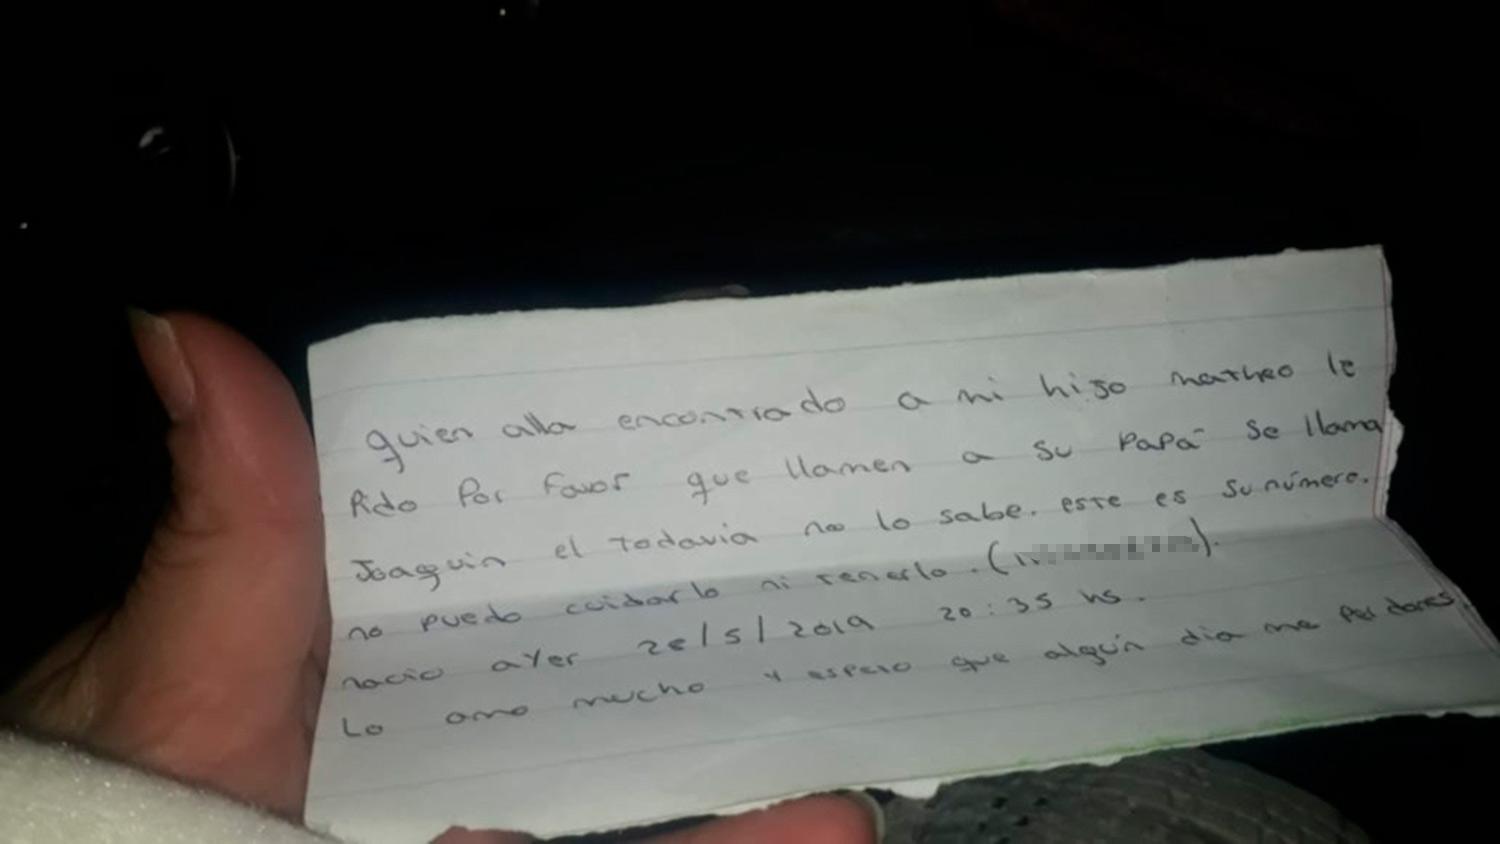 quien alla encontrado a mi hijo matheo le
Pido Por favor que llamen a su PaPá se llama
Joaquin el todavia no lo sabe. este es su número.
no puedo cuidarlo ni tenerlo. (1
nacio ayer 5/2019 20:35 hs.
Lo amo mucho y espero que algún dia me perdones